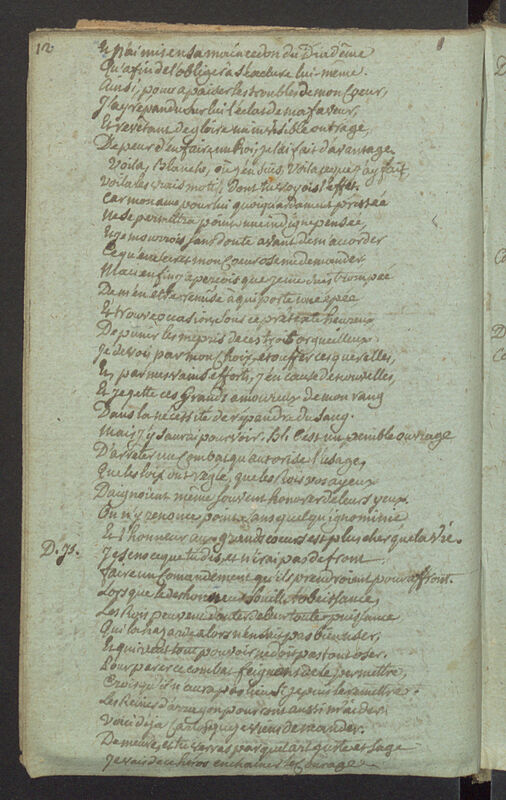 12
Et n'ai mis en sa main ce don du Diadême
Qu'afin de l'obliger à s'exclure lui-même.
Ainsi, pour apaiser les troubles de mon Coeur,
J'ay répandu sur lui l'éclat de ma faveur,
Et revêtant de gloire un invisible outrage,
De peur d'en faire un Roi, je l'ai fait davantage.
Voila, Blanche, où j'en suis, Voila ce que j'ay fait
Voila les vrais motifs dont tu voyois l'effet.
Car mon ame pour lui quoiqu'ardament pressée
Ne se permettra point une indigne pensée,
Et je mourrois sans doute avant de m'accorder
Ce qu'en secret mon Coeur ose me demander
Mais enfin j'aperçois que je me suis trompée
De m'en être remise à qui porte une épée
Et trouve occasion, sous ce prétexte heureux
De punir les mépris de ces trois orgueilleux
Je devois par mon choix, étouffer ces querelles,
Et par mes vains efforts, j'en cause de nouvelles,
Et je jette ces Grands amoureux de mon rang
Dans la nécessité de répandre du sang.
Mais j'y saurai pourvoir. Bl. C'est un penible ouvrage
D'arrêter un Combat qu'autorise l'usage,
Que les loix ont réglé, que les Rois vos ayeux
Daignoient même souvent honorer de leurs yeux.
On n'y renonce point sans quelqu'ignominie
Et l'honneur aux grands coeurs est plus cher que la vie.
D. Is. Je sens ce que tu dis, et n'irai pas de front
Faire un Comandement qu'ils prendroient pour affront.
Lorsque le deshonneur souille l'obeïssance,
Les Rois peuvent douter de leur toute puissance
Qui la hazarde alors n'en sait pas bien user,
Et qui veut tout pouvoir ne doit pas tout oser.
Pour parer ce combat feignons de le permettre,
Crois qu'il n'aura pas lieu si je puis le remettre.
Les Reines d'arragon pourront aussi m'aider.
Voici déja Carlos que je viens de mander.
Demeure, et tu verras par quel art juste et sage
Je vais de ce héros enchaîner le Courage